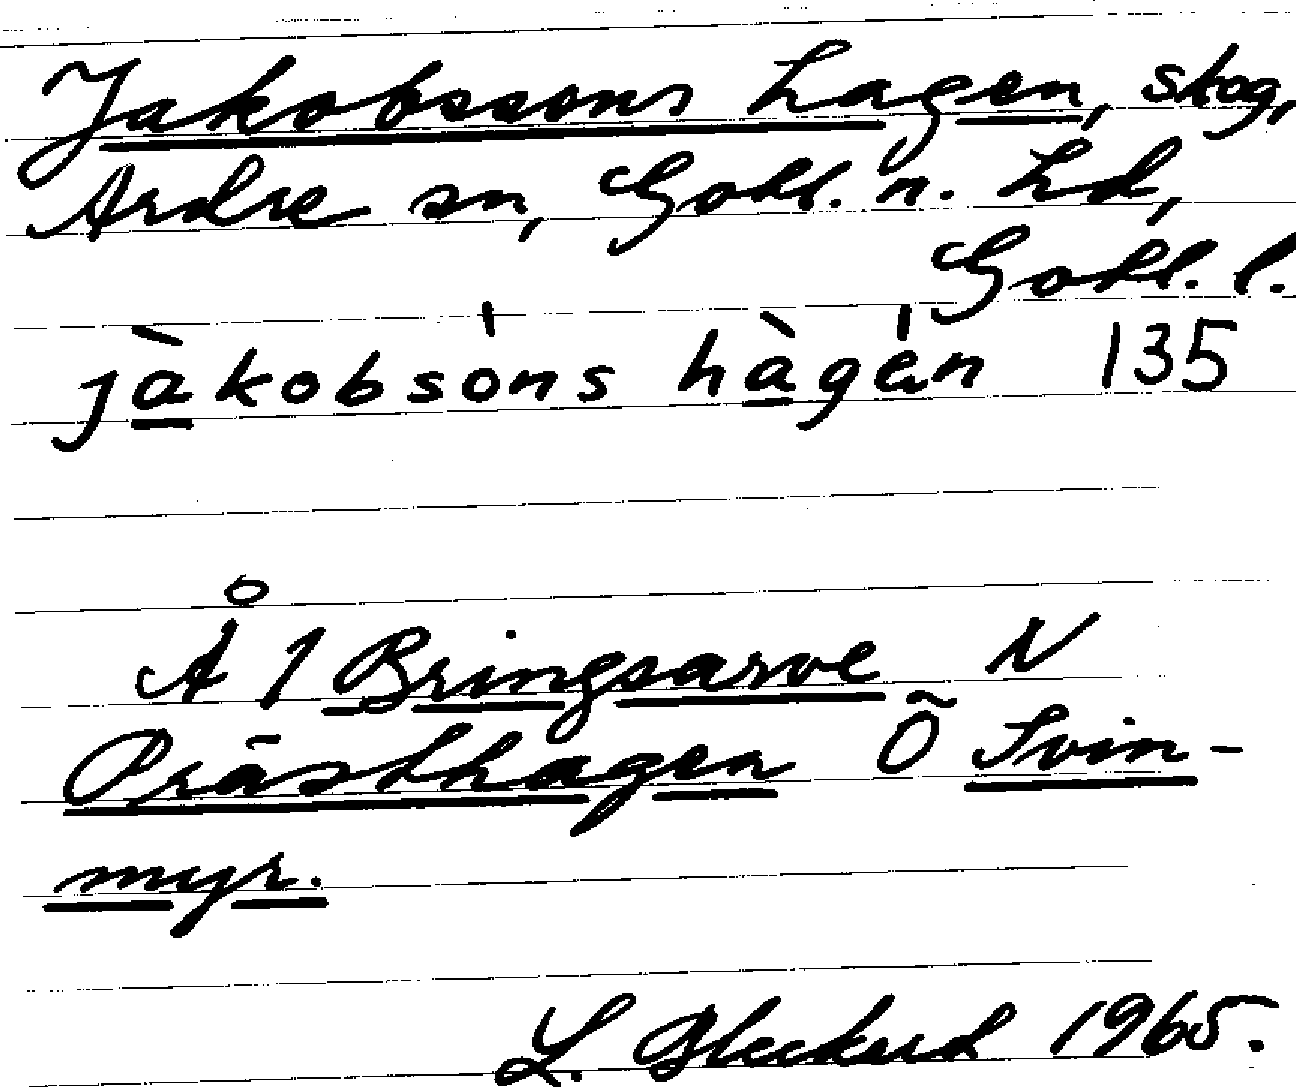 Jakobssons hagen, skog,
Ardre sn, Gotl. n. hd,
Gotl. l.
jàkobsóns hàgén 135
Å 1 Bringsarve N
Prästhagen Ö Svin-
myr.
L. 1965.